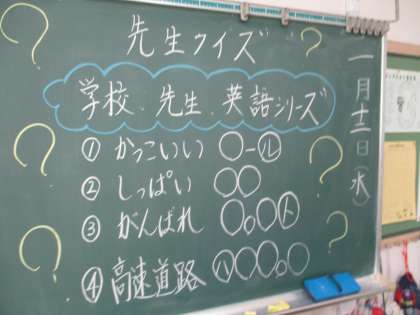 先生クイズ
学校、先生、英語シリーズ
① かっこいい ○ール
② しっぱい ○○
③ がんばれ ○。○ト
④ 高速道路 ハ○○。○
一月十二日(水)